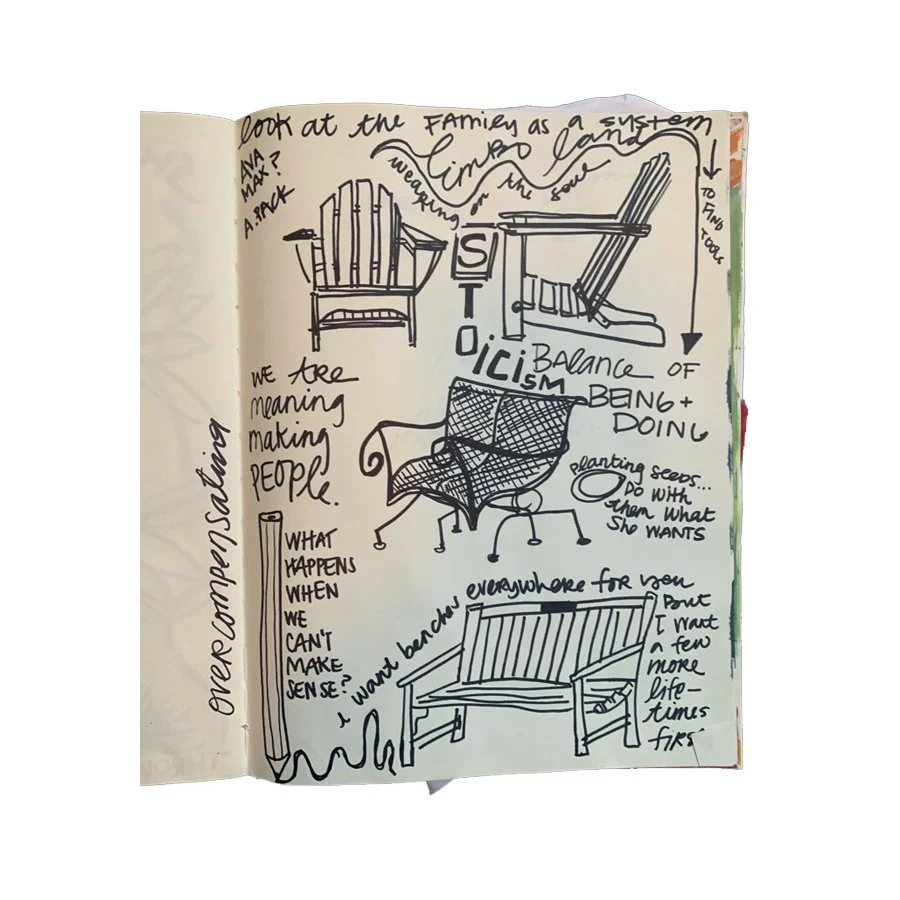 look at the FAMILY as a system
LIMBO land
weaping on the soul
AVA
MAX?
A.PACK
TO FIND
TOOLS
STOICISM
BALANCE OF
BEING +
DOING
WE ARE
meaning
making
PEOPLE.
planting seeds...
DO WITH
them WHAT
SHE WANTS
OVERCOMPENSATING
WHAT
HAPPENS
WHEN
WE
CAN'T
MAKE
SENSE?
i want benches everywhere for you
But
I want
a few
more
life-
times
first